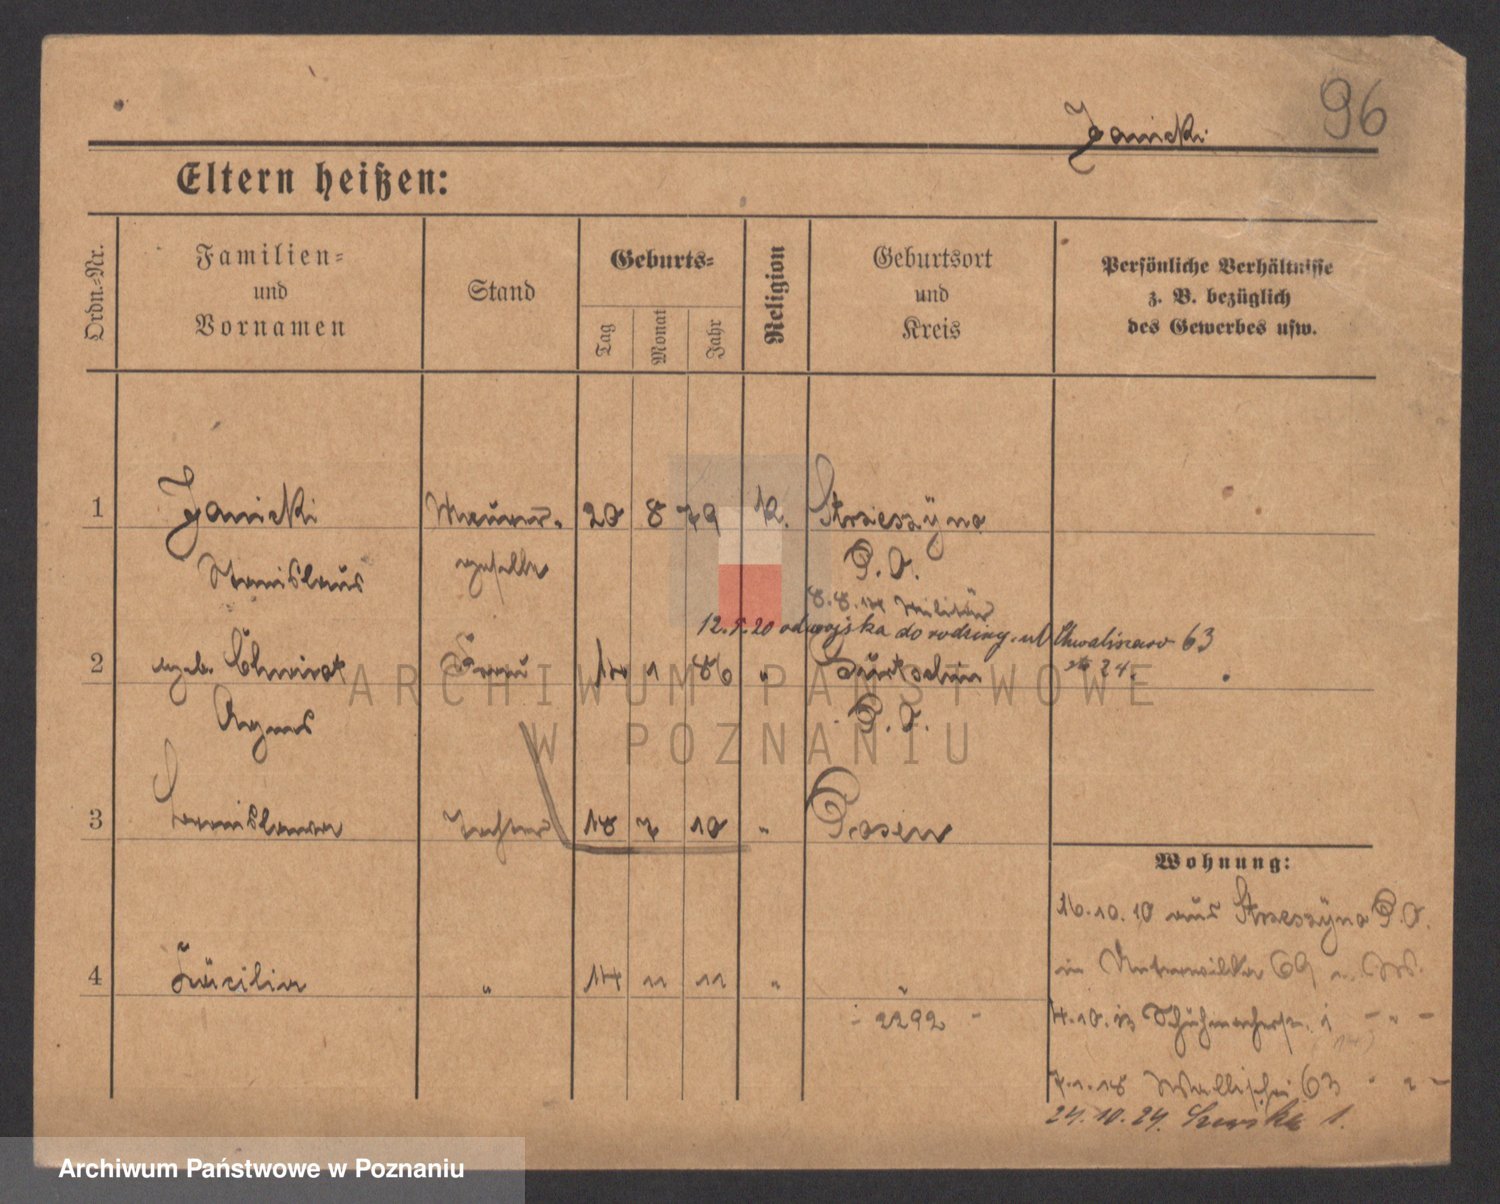 96
Janicki
Eltern heißen:
Ordn.-Nr.
Familien-
und
Vornamen
Stand
Geburts-
Tag
Monat
Jahr
Religion
Geburtsort
und
Kreis
Persönliche Verhältnisse
z. B. bezüglich
des Gewerbes usw.
1 Janicki Maurer- 20 8 79 k. Strzeszyno
Stanislaus geselle P. O.
8.8.14 Militär
12.5.20 od wojska do rodziny. ul Chwaliszewo 63
2 geb. Frau 14 1 86 "
24.
Agnes P. O.
3 Stanislawa Tochter 18 7 10 " Posen
Wohnung:
16.10.10 aus Strzeszyno P. O.
in Unterwilda 69 u. W.
4 Cäcilia " 14 11 11 " "
- 2292 -
4.10.13 Schuhmacherstr. 1 - " -
7.1.18 Wallischei 63 " " -
24.10.24. 1.
ARCHIWUM PAŃSTWOWE
W POZNANIU
Archiwum Państwowe w Poznaniu